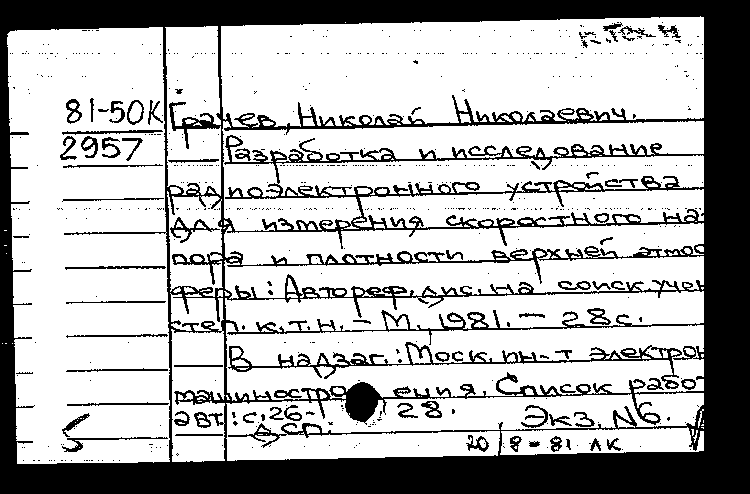 к.тех.н
81-50К Грачев, Николай Николаевич.
2957 Разработка и исследование
радиоэлектронного устройства
для измерения скоростного на-
пора и плотности верхней атмос
феры: Автореф. дис. на соиск. учен
степ. к.т.н. - М., 1981. - 28с.
В надзаг.: Моск. ин-т электрон
машиностроения. Список рабо
авт.: с. 26-28. Экз. №6.
5 дсп:
20/8-81 ЛК